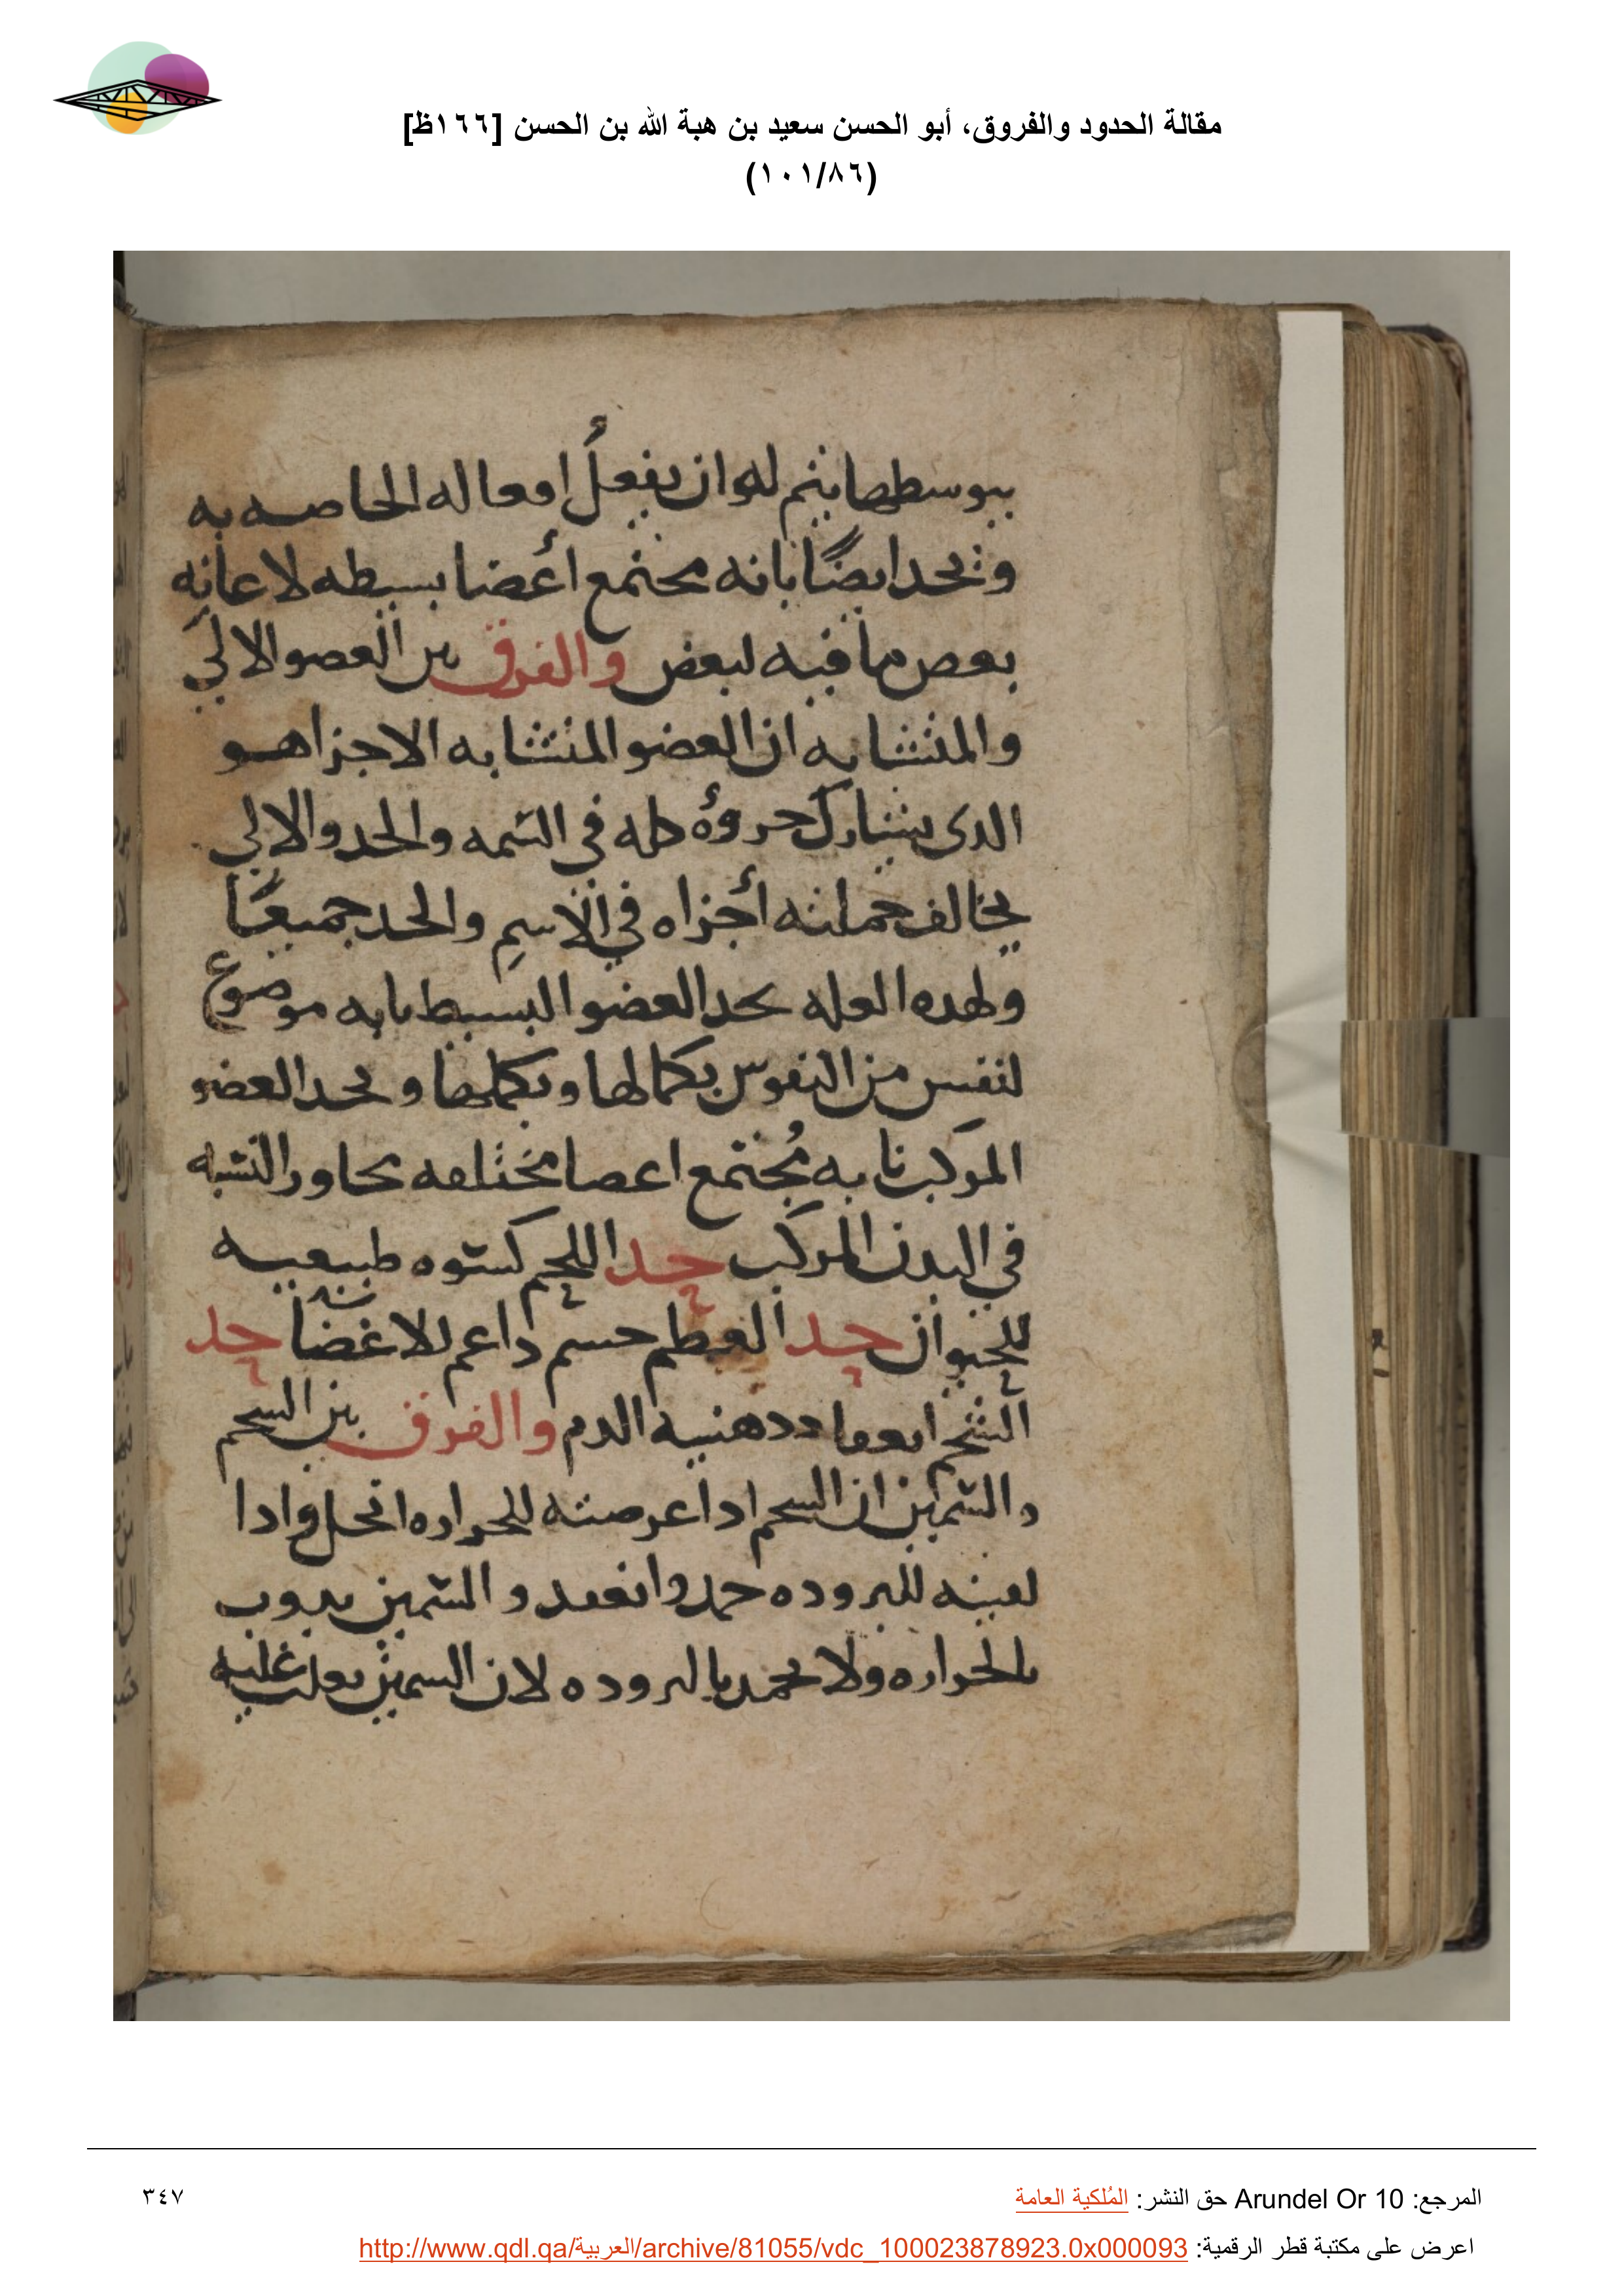 مقالة الحدود والفروق، أبو الحسن سعيد بن هبة الله بن الحسن [١٦٦ظ]
(١٠١/٨٦)
بتوسطها يتم له ان يفعل افعاله الخاصه به
وتحد ايضًا بانه مجتمع أعضا بسيطه لاعانه
بعض ما فيه لبعض والفرق بين العضو الالي
والمتشابه ان العضو المتشابه الاجزا هو
الدى يشارك جروه كله في السمه والحد والالي
يخالف جملته أجزاه في الاسم والحد جميعًا
ولهده العله يحد العضو البسيط بانه موضوع
لنفس من النفوس بكمالها وبكلها ويحد العضو
المركب بانه مُجتمع اعضا مختلفه تجاور النشبه
في البدن المركب حد اللحم كسوه طبيعيه
للحيوان حد العظم جسم داعم للاعضا حد
الشحم انعقاد دهنيه الدم والفرق بين الشحم
والسمين ان الشحم ادا عرضته للحراره انحل وادا
لقيته للبروده جمد وانعقد والسمين يدوب
بالحراره ولا يجمد بالبروده لان السمين يغلب عليه
المرجع: Arundel Or 10 حق النشر: المُلكية العامة
٣٤٧
اعرض على مكتبة قطر الرقمية: http://www.qdl.qa/العربية/archive/81055/vdc_100023878923.0x000093